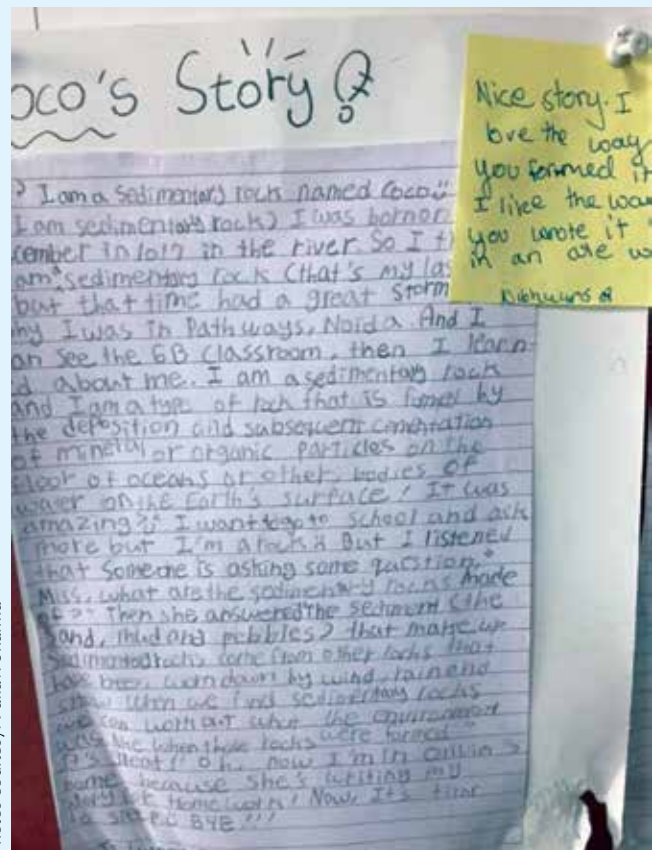 oco's Story
? I am a Sedimentary rock named Coco
I am sedimentary rock) I was born on
cember in 1017 in the river. So I t
am sedimentary rock (that's my las
but that time had a great storm
hy I was in Pathways, Noida. And I
an see the 6B classroom, then I learn-
d about me. I am a sedimentary rock
and I am a type of rock that is formed by
the deposition and subsequent cementation
of mineral or organic particles on the
floor of oceans or other bodies of
water on the Earth's surface! It was
amazing?! I want to go to school and ask
more but I'm a rock But I listened
that Someone is asking some question.
Miss, what are the sedimentary rocks made
of?? Then she answered the sediment (the
sand, mud and pebbles) that make up
Sedimented rocks come from other rocks that
have been worn down by wind, rain and
when we find sedimentary rocks
we can work out what the environment
was like when those rocks were formed"
It's great!! Oh, now I'm in
home because she's writing my
story for Homework! Now, It's time
to sleep BYE!!!
Nice story. I
love the way
you formed it
I like the way
you wrote it
in an are w